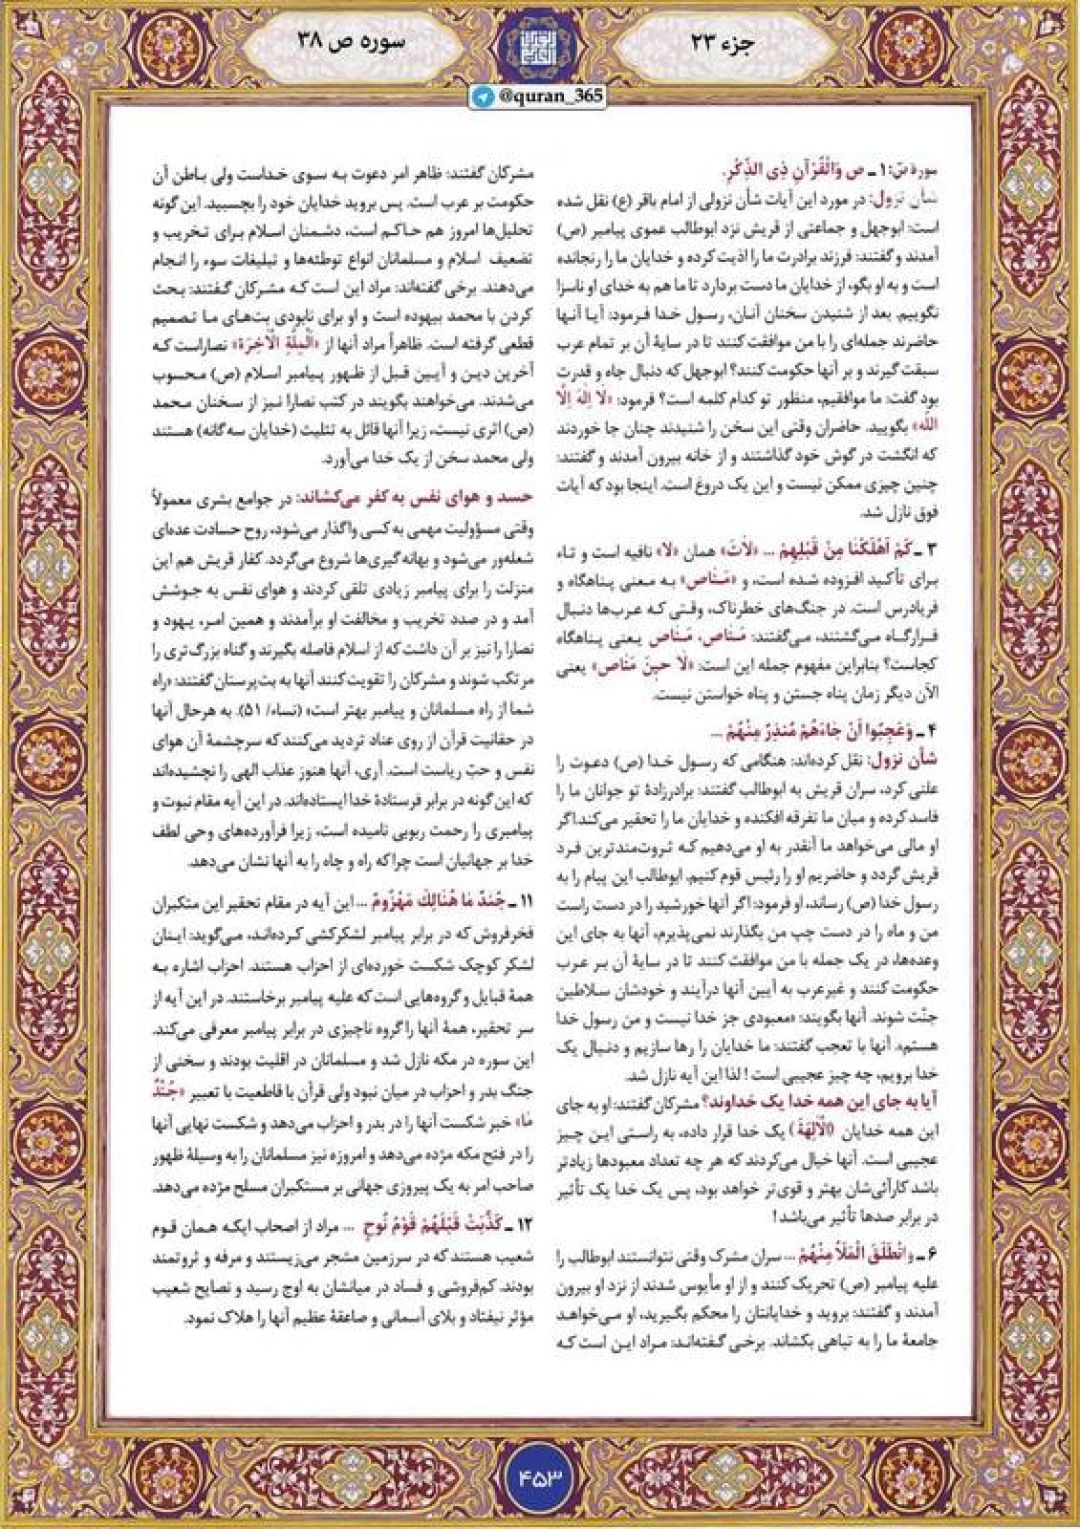 جزء ۲۳
سوره ص ۳۸
@quran_365
سورهٔ ص: ۱ ـ ص وَالْقُرْآنِ ذِی الذِّکْرِ.
شأن نزول: در مورد این آیات شأن نزولی از امام باقر (ع) نقل شده
است: ابوجهل و جماعتی از قریش نزد ابوطالب عموی پیامبر (ص)
آمدند و گفتند: فرزند برادرت ما را اذیت کرده و خدایان ما را رنجانده
است و به او بگو، از خدایان ما دست بردارد تا ما هم به خدای او ناسزا
نگوییم. بعد از شنیدن سخنان آنان، رسول خدا فرمود: آیا آنها
حاضرند جمله‌ای را با من موافقت کنند تا در سایهٔ آن بر تمام عرب
سبقت گیرند و بر آنها حکومت کنند؟ ابوجهل که دنبال جاه و قدرت
بود گفت: ما موافقیم، منظور تو کدام کلمه است؟ فرمود: «لَا اِلٰهَ اِلَّا
اللّٰه» بگویید. حاضران وقتی این سخن را شنیدند چنان جا خوردند
که انگشت در گوش خود گذاشتند و از خانه بیرون آمدند و گفتند:
چنین چیزی ممکن نیست و این یک دروغ است. اینجا بود که آیات
فوق نازل شد.
۳ ـ کَمْ اَهْلَکْنَا مِنْ قَبْلِهِمْ ... «لَاتَ» همان «لا» نافیه است و تاء
برای تأکید افزوده شده است، و «مَنَاص» به معنی پناهگاه و
فریادرس است. در جنگ‌های خطرناک، وقتی که عرب‌ها دنبال
قرارگاه می‌گشتند، می‌گفتند: مَنَاص، مَنَاص یعنی پناهگاه
کجاست؟ بنابراین مفهوم جمله این است: «لَا حینَ مَنَاص» یعنی
الآن دیگر زمان پناه جستن و پناه خواستن نیست.
۴ ـ وَعَجِبُوا اَنْ جَاءَهُمْ مُنْذِرٌ مِنْهُمْ ...
شأن نزول: نقل کرده‌اند: هنگامی که رسول خدا (ص) دعوت را
علنی کرد، سران قریش به ابوطالب گفتند: برادرزادهٔ تو جوانان ما را
فاسد کرده و میان ما تفرقه افکنده و خدایان ما را تحقیر می‌کند اگر
او مالی می‌خواهد ما آنقدر به او می‌دهیم که ثروت‌مندترین فرد
قریش گردد و حاضریم او را رئیس قوم کنیم. ابوطالب این پیام را به
رسول خدا (ص) رساند، او فرمود: اگر آنها خورشید را در دست راست
من و ماه را در دست چپ من بگذارند نمی‌پذیرم، آنها به جای این
وعده‌ها، در یک جمله با من موافقت کنند تا در سایهٔ آن بر عرب
حکومت کنند و غیرعرب به آیین آنها درآیند و خودشان سلاطین
جنّت شوند. آنها بگویند: «معبودی جز خدا نیست و من رسول خدا
هستم». آنها با تعجب گفتند: ما خدایان را رها سازیم و دنبال یک
خدا برویم، چه چیز عجیبی است! لذا این آیه نازل شد.
آیا به جای این همه خدا یک خداوند؟ مشرکان گفتند: او به جای
این همه خدایان (اَلْآلِهَةَ) یک خدا قرار داده، به راستی این چیز
عجیبی است. آنها خیال می‌کردند که هر چه تعداد معبودها زیادتر
باشد کارآئی‌شان بهتر و قوی‌تر خواهد بود، پس یک خدا یک تأثیر
در برابر صدها تأثیر می‌باشد!
۶ ـ وانْطَلَقَ الْمَلَأُ مِنْهُمْ ... سران مشرک وقتی نتوانستند ابوطالب را
علیه پیامبر (ص) تحریک کنند و از او مأیوس شدند از نزد او بیرون
آمدند و گفتند: بروید و خدایانتان را محکم بگیرید، او می‌خواهد
جامعهٔ ما را به تباهی بکشاند. برخی گفته‌اند: مراد این است که
مشرکان گفتند: ظاهر امر دعوت به سوی خداست ولی باطن آن
حکومت بر عرب است. پس بروید خدایان خود را بچسبید. این گونه
تحلیل‌ها امروز هم حاکم است، دشمنان اسلام برای تخریب و
تضعیف اسلام و مسلمانان انواع توطئه‌ها و تبلیغات سوء را انجام
می‌دهند. برخی گفته‌اند: مراد این است که مشرکان گفتند: بحث
کردن با محمد بیهوده است و او برای نابودی بت‌های ما تصمیم
قطعی گرفته است. ظاهراً مراد آنها از «اَلْمِلَّةِ الْآخِرَةِ» نصاراست که
آخرین دین و آیین قبل از ظهور پیامبر اسلام (ص) محسوب
می‌شدند. می‌خواهند بگویند در کتب نصارا نیز از سخنان محمد
(ص) اثری نیست، زیرا آنها قائل به تثلیث (خدایان سه گانه) هستند
ولی محمد سخن از یک خدا می‌آورد.
حسد و هوای نفس به کفر می‌کشاند: در جوامع بشری معمولاً
وقتی مسؤولیت مهمی به کسی واگذار می‌شود، روح حسادت عده‌ای
شعله‌ور می‌شود و بهانه گیری‌ها شروع می‌گردد. کفار قریش هم این
منزلت را برای پیامبر زیادی تلقی کردند و هوای نفس به جوشش
آمد و در صدد تخریب و مخالفت او برآمدند و همین امر، یهود و
نصارا را نیز بر آن داشت که از اسلام فاصله بگیرند و گناه بزرگ‌تری را
مرتکب شوند و مشرکان را تقویت کنند آنها به بت‌پرستان گفتند: «راه
شما از راه مسلمانان و پیامبر بهتر است» (نساء/ ۵۱). به هرحال آنها
در حقانیت قرآن از روی عناد تردید می‌کنند که سرچشمهٔ آن هوای
نفس و حبّ ریاست است. آری، آنها هنوز عذاب الهی را نچشیده‌اند
که این گونه در برابر فرستادهٔ خدا ایستاده‌اند. در این آیه مقام نبوت و
پیامبری را رحمت ربوبی نامیده است، زیرا فرآورده‌های وحی لطف
خدا بر جهانیان است چراکه راه و چاه را به آنها نشان می‌دهد.
۱۱ ـ جُنْدٌ مَا هُنَالِكَ مَهْزُومٌ ... این آیه در مقام تحقیر این متکبران
فخرفروش که در برابر پیامبر لشکرکشی کرده‌اند، می‌گوید: اینان
لشکر کوچک شکست خورده‌ای از احزاب هستند. احزاب اشاره به
همهٔ قبایل و گروه‌هایی است که علیه پیامبر برخاستند. در این آیه از
سر تحقیر، همهٔ آنها را گروه ناچیزی در برابر پیامبر معرفی می‌کند.
این سوره در مکه نازل شد و مسلمانان در اقلیت بودند و سخنی از
جنگ بدر و احزاب در میان نبود ولی قرآن با قاطعیت با تعبیر «جُنْدٌ
مَا» خبر شکست آنها را در بدر و احزاب می‌دهد و شکست نهایی آنها
را در فتح مکه مژده می‌دهد و امروزه نیز مسلمانان را به وسیلهٔ ظهور
صاحب امر به یک پیروزی جهانی بر مستکبران مسلح مژده می‌دهد.
۱۲ ـ کَذَّبَتْ قَبْلَهُمْ قَوْمُ نُوحٍ ... مراد از اصحاب ایکه همان قوم
شعیب هستند که در سرزمین مشجر می‌زیستند و مرفه و ثروتمند
بودند. کم‌فروشی و فساد در میانشان به اوج رسید و نصایح شعیب
مؤثر نیفتاد و بلای آسمانی و صاعقهٔ عظیم آنها را هلاک نمود.
۴۵۳